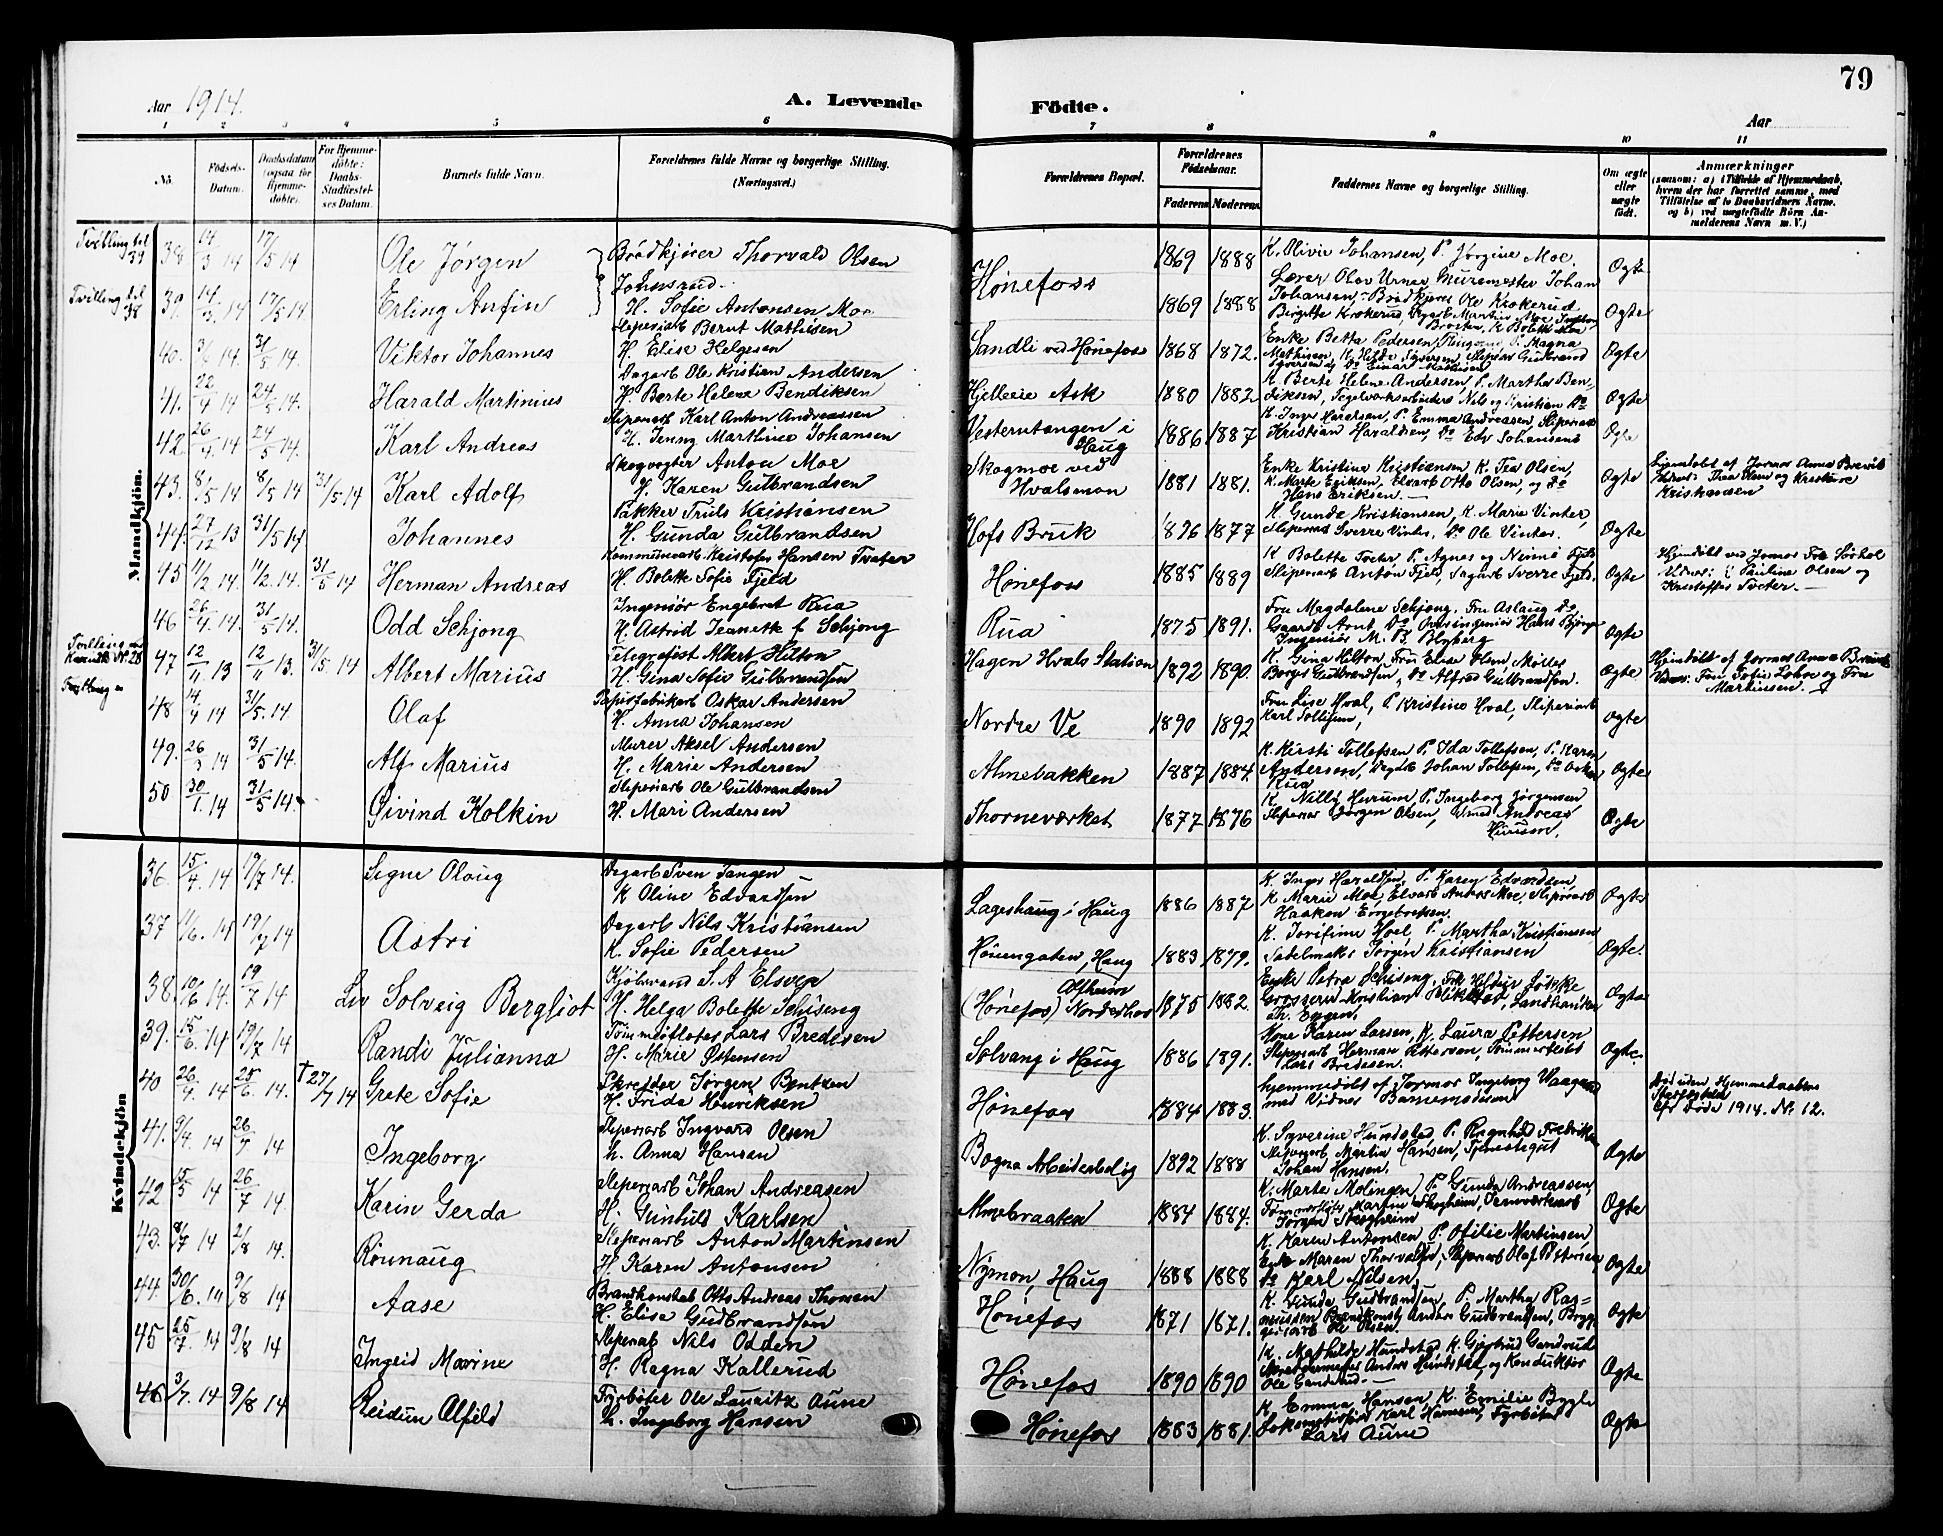 79
Aar 1914.
A. Levende
Födte.
Aar
1 2 3 4 5 6
7 8 9 10 11
No.
Födsels-Datum.
Daabsdatum (ogsaa for Hjemme-döbte).
For Hjemme-döbte: Daabs-Stadfæstel-ses Datum.
Barnets fulde Navn.
Forældrenes fulde Navne og borgerlige Stilling. (Næringsvei.)
Forældrenes Bopæl.
Forældrenes Födselsaar.
Faderens Moderens
Faddernes Navne og borgerlige Stilling.
Om ægte eller uægte födt.
Anmærkninger
(saasom: a) i Tilfælde af Hjemmedaab,
hvem der har forrettet samme, med
Tilföielse af to Daabsvidners Navne.
og b) ved uægtefödte Börn An-
melderens Navn m. V.)
Mandkjön.
Tvilling til 39
38 14/3 14 17/5 14 Ole Jørgen
Brødkjører Thorvald Olsen
Johnsrud
Hønefoss
1869 1888
K. Olivie Johansen, P. Jørgine Moe.
Lærer Olav Urnes Muremester Johan
Ægte
Tvilling til 38
39. 14/3 14 17/5 14 Erling Anfin
H. Sofie Antonsen Moe
1869 1888
Johansen, Brødkjører Ole Krokerud
Birgitte Krokerud,
Ægte
40. 14 31/5 14. Viktor Johannes
Sliperiarb Bernt Mathisen
H. Elise Helgesen
Sandli ved Hønefos
1868 1872.
Enke Betha Pedersen, P. Magna
Ægte
41. 22/4 14 24/5 14. Harald Martinius
Dagarb Ole Kristian Andersen
H. Berte Helene Bendiksen
Hjelleie Ask
1880 1882
K. Berte Helene Andersen, P. Martha Ben-
diksen, Sagverksarbeiders Nils og Kristian Do
Ægte
42. 26/4 14 24/5 14. Karl Andreas
Sliperiarb Karl Anton Andreassen
H. Jenny Marthine Johansen
Vesterntangen i Haug
1886 1887
K. Inger Haraldsen, P. Emma Andreasen, Sliperiarb
Kristian Haraldsen, Do Edv Johansens
Ægte
43. 8/5 14 8/5 14 31/5 14 Karl Adolf
Skogvogter Anton Moe
H. Karen Gulbrandsen
Skogmoe ved Hvalsmon
1881 1881.
Enke Kristine Kristiansen K. Tea Olsen,
K. Marte Eriksen, Elvarb Otto Olsen, og do
Hans Eriksen. —
Ægte
Hjemdøbt af Jormor Anna Brevik
Vidner: Tea Olsen og Kristine
Kristiansen
44. 27/12 13 31/5 14 Johannes
Pakker Truls Kristiansen
H. Gunda Gulbrandsen
Hofs Bruk
1876 1877
K. Gunda Kristiansen, K. Marie Vinter,
Sliperiarb Sverre Vinter, Do Ole Vinter.
Ægte
45 11/2 14. 11/2 14. 31/5 14 Herman Andreas
Kommunearb. Kristofer Hansen Tveter
H. Bolette Sofie Fjeld
Hønefos
1885 1889
K Bolette Tveter, P. Agnes og Nimi Fjeld
Sliperiarb Anton Fjeld, Sagarb Sverre Fjeld.
Ægte
Hjemdøbt ved Jormor Fru Sørhol
Vidner: Pauline Olsen og
Kristoffer Tveter. —
46 26/4 14. 31/5 14. Odd Schjong
Ingeniør Engebret Rua
H. Astrid Jeanette f Schjong
Rua
1875 1891.
Fru Magdalene Schjong, Fru Aslaug do,
Gaardb Arnt Do Overingeniør Hans Bjørge
Ingeniør M. B. Blyberg
Ægte
47 12/11 13 12/11 13. 31/5 14 Albert Marius
Telegrafist Albert Hilton
H. Gina Sofie Gulbrandsen
Hagen Hvals Station
1892 1890.
K. Gina Hilton, Fru Elise Olsen, Møller
Borger Gulbrandsen, Do Alfred Gulbrandsen.
Ægte
Hjemdøbt af Jormor Anna Brevik
Vidner: Fru Sofie Lohre og Fru
Martinsen.
48 14/4 14 31/5 14 Olaf
Papirfabrikarb Oskar Andersen
H. Anna Johansen
Nordre Ve
1890 1892
Fru Lise Hval, P. Kristine Hval, Sliperiarb
Karl Tollefsen,
Ægte
49. 26/3 14 31/5 14. Alf Marius
Murer Aksel Andersen
H. Marie Andersen
Almebakken
1887 1884.
K. Kirsti Tollefsen P. Ida Tollefsen, P. Karen
Andersen, Dagarb Johan Tollefsen, Do Oskar
Rua
Ægte
50 30/1 14 31/5 14. Øivind Kolkin
Sliperiarb Ole Gulbrandsen
H. Mari Andersen
Thorneværket
1877 1876
K. Nilly Hurum, P. Ingeborg Jørgensen
Sliperiar Jørgen Olsen, Andreas
Ægte
Kvindekjön
36. 15/4 14 19/7 14. Signe Olaug
Dagarb Sven Tangen
K Oline Edvardsen
Lageshaug i Haug
1886 1887
K. Inger Haraldsen, P. Karen Edvardsen,
K Marie Moe, Elvarb Anders Moe, Sliperiarb
Haaken Engebretsen.
Ægte
37 11/6 14 19/7 14 Astri
Dagarb Nils Kristiansen
K. Sofie Pedersen
Hønengaten, Haug
1883 1879.
K. Josefine Hoel P. Martha Kristiansen
Sadelmaker Jørgen Kristiansen
Ægte.
38. 10/6 14. 19/7 14 Liv Solveig Bergliot
Kjøbmand S. A Elsrep
H. Helga Bolette Schiseng
(Hønefos) Nordrehov
1875 1882.
Enke Petra Schiseng,
Ægte
39. 15/6 14 19/7 14 Randi Julianna
Tømmerfløter Lars Bredesen
H. Marie Østensen
Solvang i Haug
1886 1891.
Kone Karen Larsen, K. Laura Pettersen
Sliperiarb Herman Pettersen, Tømmerfløter
Lars Bredesen
Ægte.
40 26/4 14 25/6 14. † 27/7 14 Grete Sofie
Skredder Jørgen Bentzen
H. Frida Henriksen
Hønefos
1884 1883.
hjemmedøbt af Jormor Ingeborg Waagaard
med Vidner Barnemoderen
Død uden Hjemmedaabens
Stadfæstelse
cfr Døde 1914. Nr. 12.
41. 9/4 14 26/7 14 Ingeborg
Sliperiarb Ingvard Olsen
h. Anna Hansen
Bogna Arbeiderbolig
1892 1888
K. Syverine Hundstad P. Ragnhild Fredrikke
Sliperiarb Martin Hansen, Tjenestegut
Johan Hansen.
Ægte
42 15/5 14 26/7 14 Karin Gerda
Sliperiarb Johan Andreasen
H. Gunhild Karlsen
Almebraaten
1884 1884.
K. Marte Molingen, P Gunda Andreassen,
Tømmerfløter Martin Skogheim, Jernværksarb
Jørgen Skogheim
Ægte
43. 8/7 14 2/8 14. Rønnaug
Sliperiarb Anton Martinsen
H. Karen Antonsen
Nymon, Haug
1888 1888
K. Karen Antonsen, P. Ofilie Martinsen
Enke Maren Thorvaldsen, Sliperiarb Olaf Pettersen
Do Karl Nilsen,
Ægte
44. 30/6 14 9/8 14 Aase
Brandkonstab Otto Andreas Thomsen
H. Elise Gudbrandsen
Hønefos
1871 1871.
K. Gunda Gudbrandsen, P. Martha Ras-
mussen Brandkonst Anders Gudbrandsen, Brygg-
geriarb Ole Olsen.
Ægte
45 25/7 14 9/8 14 Ingrid Marine
Sliperiarb Nils Odden
H. Ragna Kallerud
Hønefos
1890 1890
K. Mathilde Hundstad K. Gjertrud Gandrud
Anders Hundstad, og Konduktør
Ole Gandrud. —
Ægte
46 3/7 14 9/8 14 Reidun Alfild
Fyrbøter Ole Lauritz Aune
H. Ingeborg Hansen
Hønefos
1883 1881.
K Emma Hansen, K. Emilie Bygle
Lokomotivfører Karl Hansen, Fyrbøter
Lars Aune
Ægte